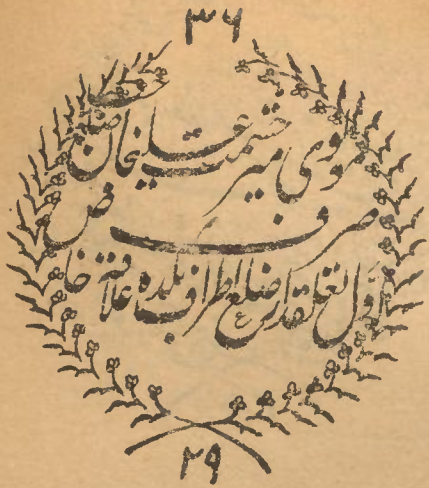 ۳۶
مولوی میر حشمت علیخان صاحب
صرف ص
اول تعلقدار ضلع اطراف بلده علاقہ خا
۲۹